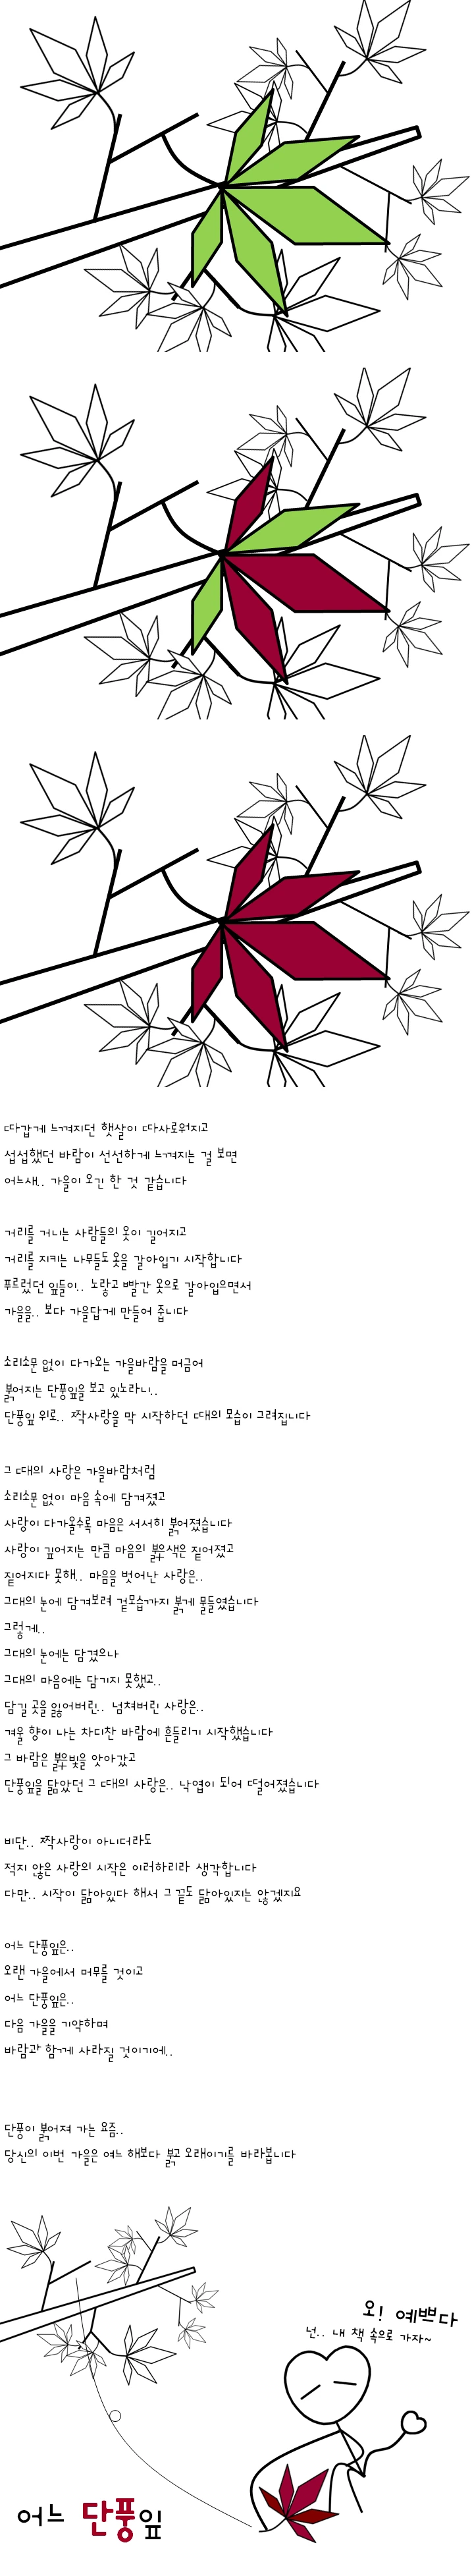 따갑게 느껴지던 햇살이 따사로워지고
섭섭했던 바람이 선선하게 느껴지는 걸 보면
어느새.. 가을이 오긴 한 것 같습니다
거리를 거니는 사람들의 옷이 길어지고
거리를 지키는 나무들도 옷을 갈아입기 시작합니다
푸르렀던 잎들이.. 노랗고 빨간 옷으로 갈아입으면서
가을을.. 보다 가을답게 만들어 줍니다
소리소문 없이 다가오는 가을바람을 머금어
붉어지는 단풍잎을 보고 있노라니..
단풍잎 위로.. 짝사랑을 막 시작하던 그대의 모습이 그려집니다
그 그대의 사랑은 가을바람처럼
소리소문 없이 마음 속에 담겨졌고
사랑이 다가올수록 마음은 서서히 붉어졌습니다
사랑이 깊어지는 만큼 마음의 붉은색은 짙어졌고
짙어지다 못해.. 마음을 벗어난 사랑은..
그대의 눈에 담겨보려 겉모습까지 붉게 물들였습니다
그렇게..
그대의 눈에는 담겼으나
그대의 마음에는 담기지 못했고..
담길 곳을 잃어버린.. 넘쳐버린 사랑은..
겨울 향이 나는 차디찬 바람에 흔들리기 시작했습니다
그 바람은 붉은빛을 앗아갔고
단풍잎을 닮았던 그 그대의 사랑은.. 낙엽이 되어 떨어졌습니다
비단.. 짝사랑이 아니더라도
적지 않은 사랑의 시작은 이러하리라 생각합니다
다만.. 시작이 닮아있다 해서 그 끝도 닮아있지는 않겠지요
어느 단풍잎은..
오랜 가을에서 머무를 것이고
어느 단풍잎은..
다음 가을을 기약하며
바람과 함께 사라질 것이기에..
단풍이 붉어져 가는 요즘..
당신의 이번 가을은 여느 해보다 붉고 오래이기를 바라봅니다
오! 예쁘다
넌.. 내 책 속으로 가자~
어느 단풍잎